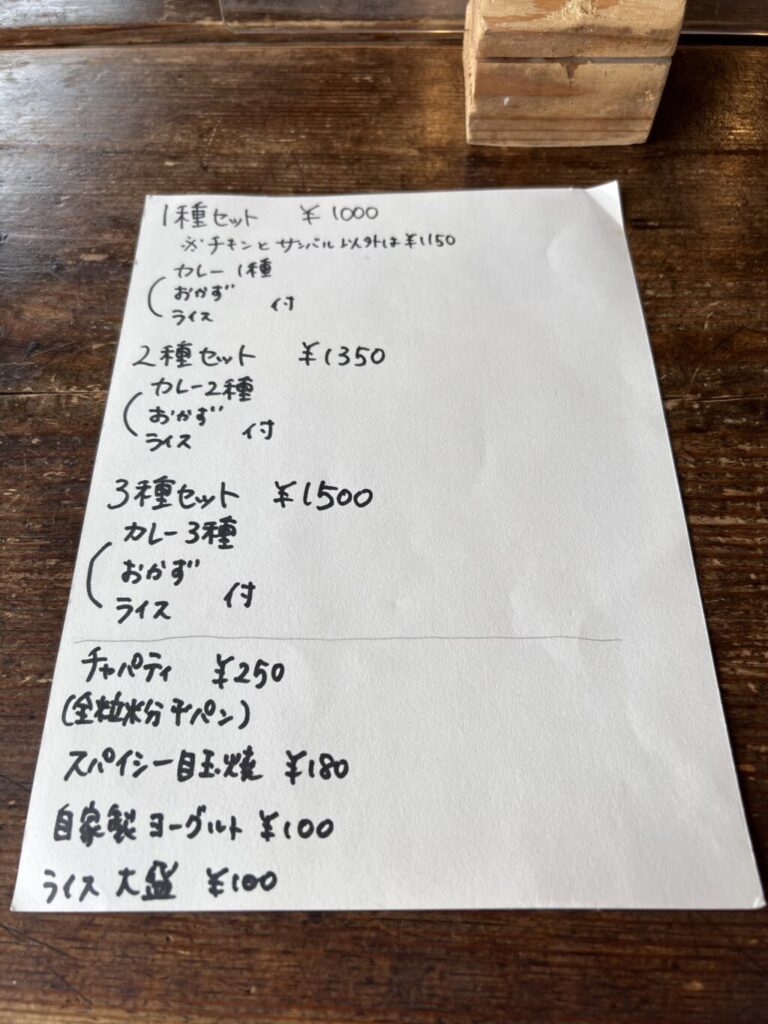 1種セット ¥1000
※チキンとサンバル以外は¥1150
カレー1種
おかず
ライス 付
2種セット ¥1350
カレー2種
おかず
ライス 付
3種セット ¥1500
カレー3種
おかず
ライス 付
チャパティ ¥250
(全粒粉平パン)
スパイシー目玉焼 ¥180
自家製ヨーグルト ¥100
ライス大盛 ¥100